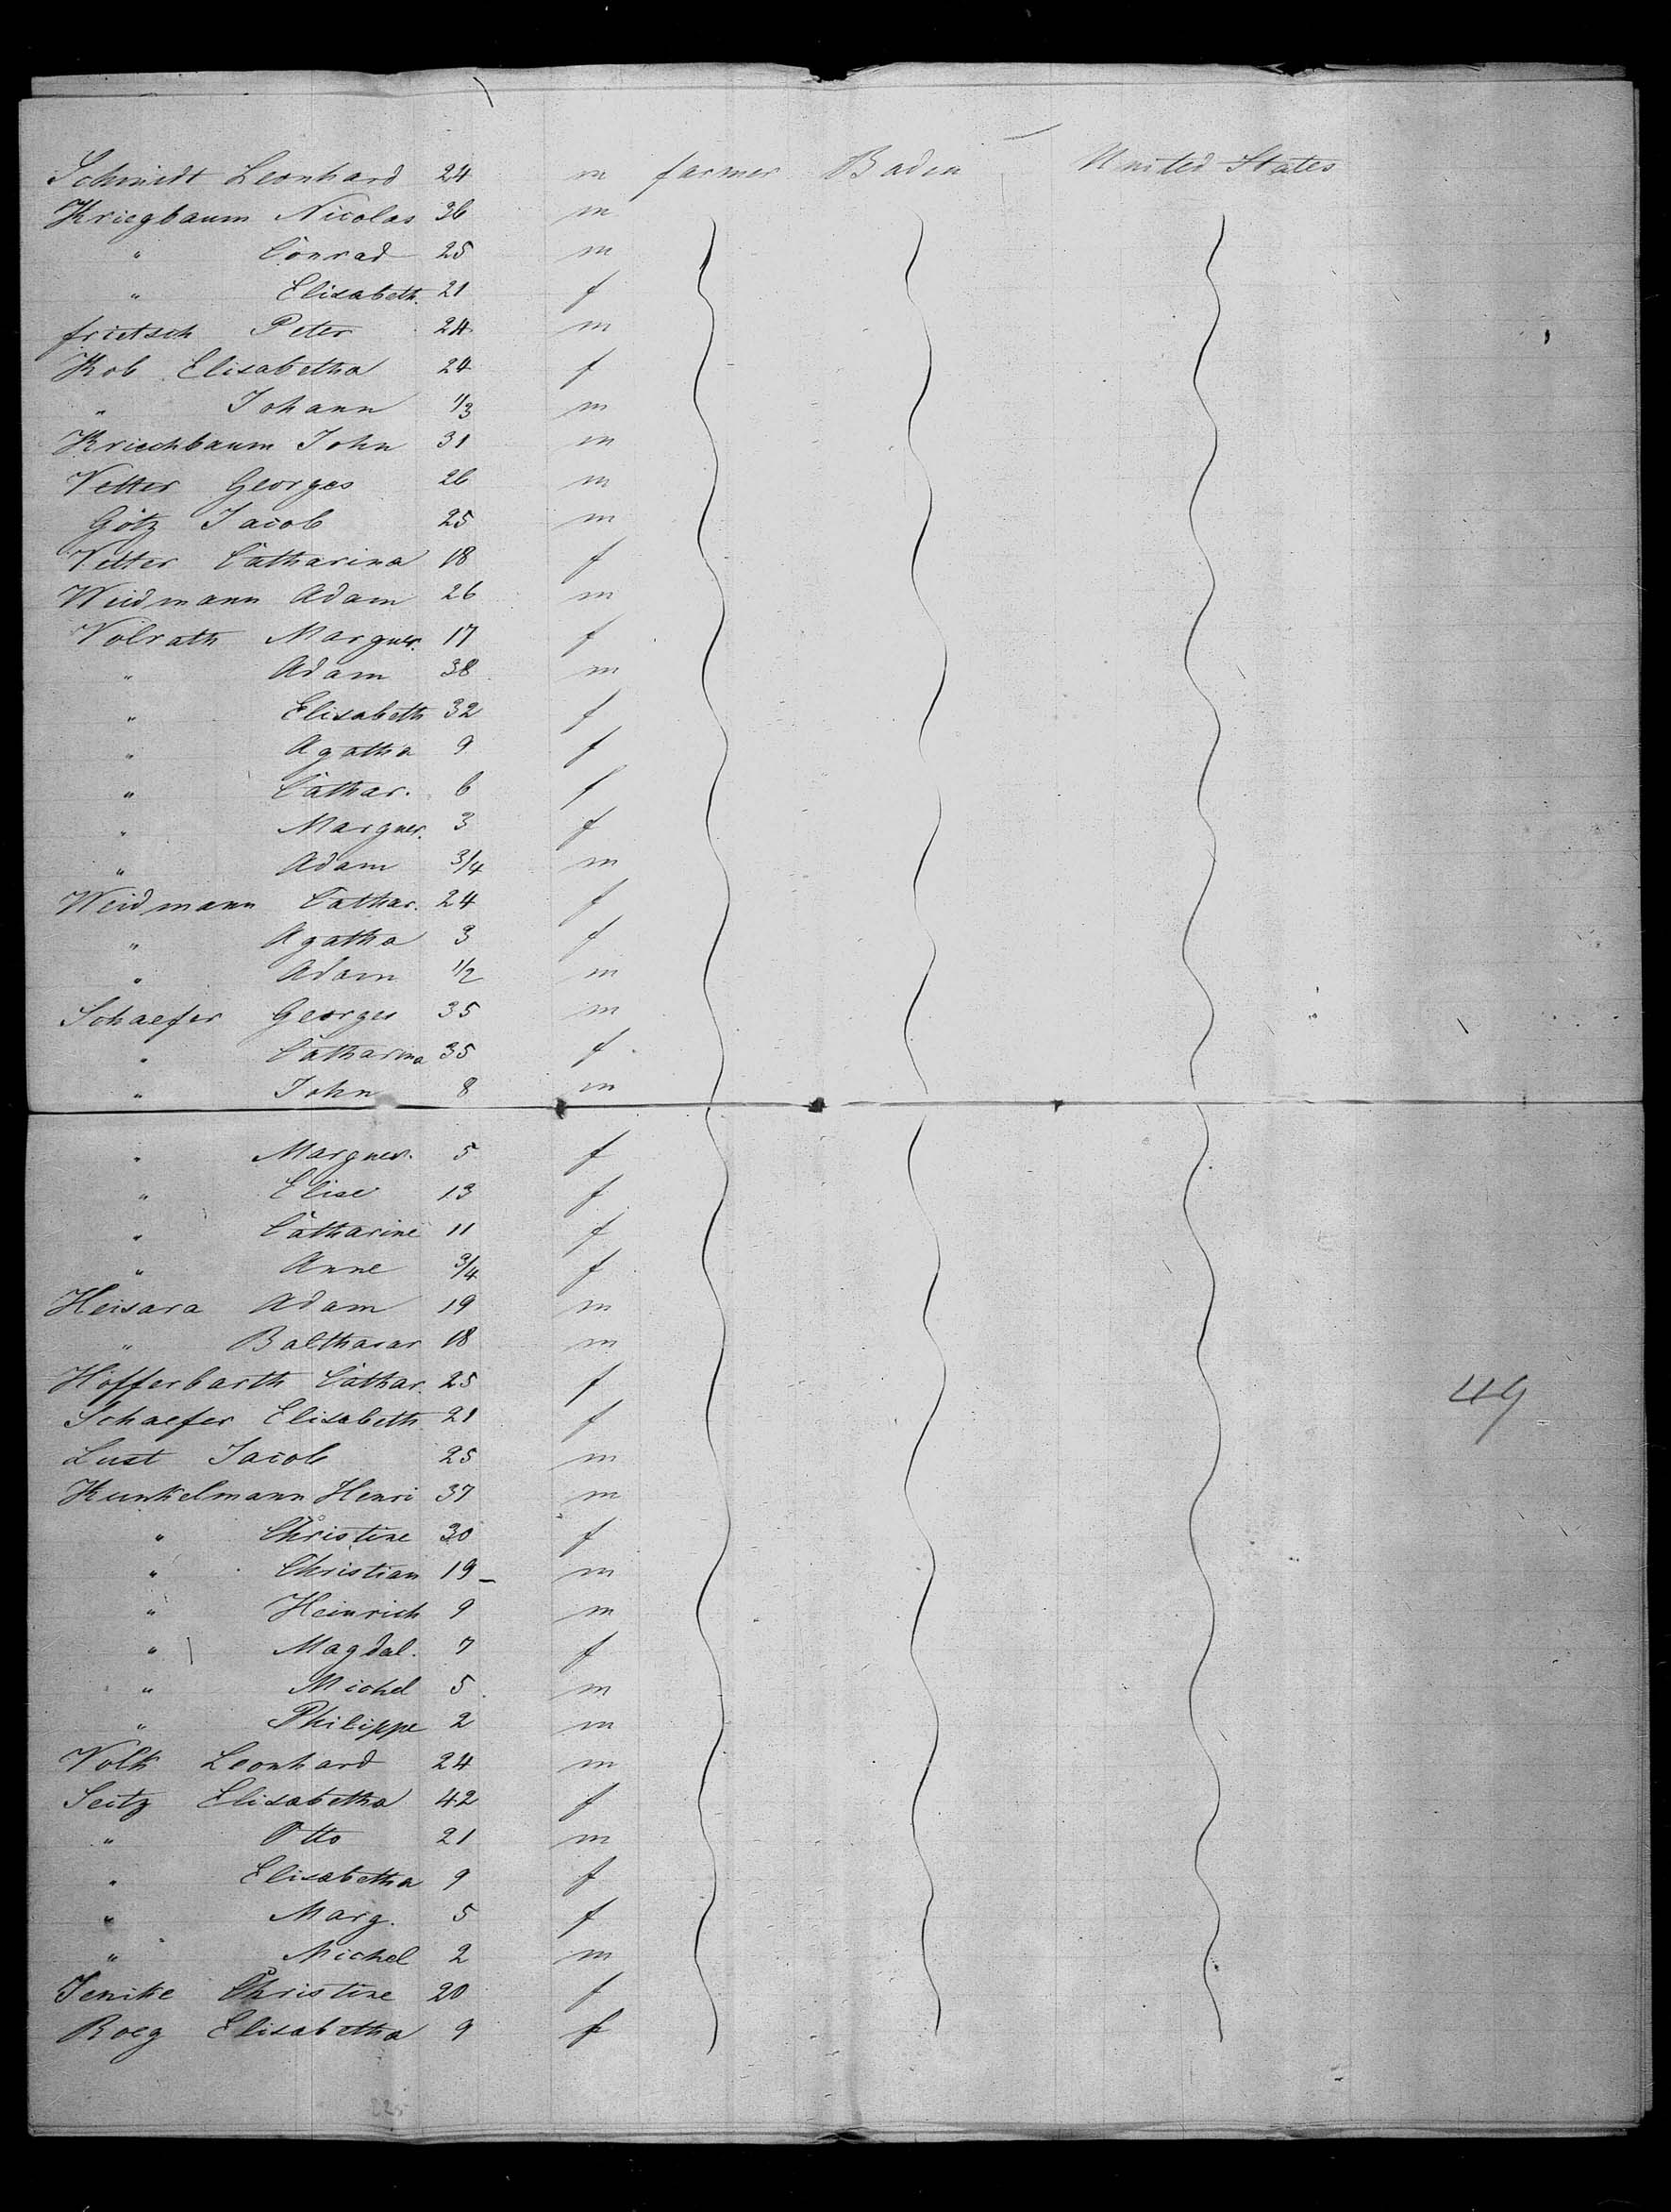 Schmidt Leonhard 24 m farmer Baden United States
Kriegbaum Nicolas 36 m
" Conrad 25 m
" Elisabeth. 21 f
frietsch Peter 24 m
Kob Elisabetha 24 f
" Johann 1/3 m
Kriechbaum John 31 m
Vetter Georges 26 m
Götz Jacob 25 m
Vetter Catharina 18 f
Weidmann Adam 26 m
Volrath Margner. 17 f
" Adam 38 m
" Elisabeth 32 f
" Agatha 9 f
" Cathar. 6 f
" Margner. 3 f
" Adam 3/4 m
Weidmann Cathar. 24 f
" Agatha 3 f
" Adam 1/2 m
Schaefer Georges 35 m
" Catharina 35 f
" John 8 m
" Margner. 5 f
" Elise 13 f
" Catharine 11 f
" Anne 3/4 f
Heisara Adam 19 m
" Balthasar 18 m
Höfferbarth Cathar. 25 f
Schaefer Elisabeth 21 f
Lust Jacob 25 m
Kunkelmann Henri 37 m
" Christine 30 f
" Christian 19 m
" Heinrich 9 m
" Magdal. 7 f
" Michel 5 m
" Philippe 2 m
Volk Leonhard 24 m
Seitz Elisabetha 42 f
" Otto 21 m
" Elisabetha 9 f
" Marg. 5 f
" Michel 2 m
Jenike Christine 20 f
Roeg Elisabetha 9 f
49